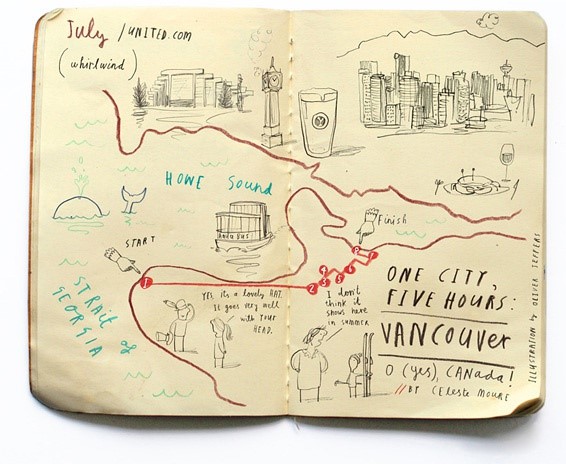 July / UNITED.COM
(whirlwind)
HOWE Sound
START
Finish
STRAIT of
GEORGIA
1
2
3
5
6
7
YES, its a lovely HAT.
It goes very well
with YOUR
HEAD.
I don't
think it
snows here
in summer
ONE CITY,
FIVE HOURS:
VANCOUVER
O (yes), CANada!
// BY Celeste MOURE
ILLUSTRATION by OLIVER JEFFERS